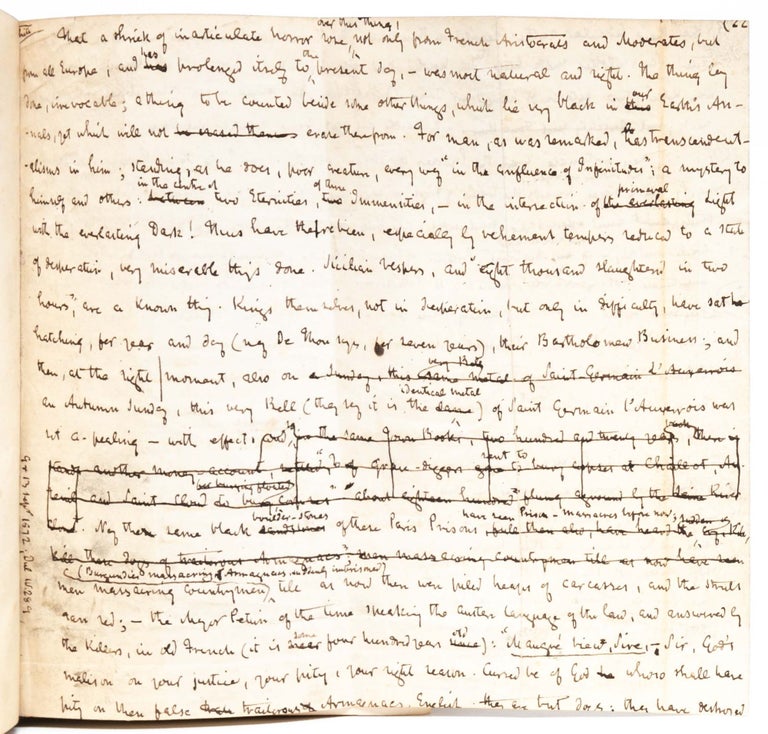 (22
over this thing!
That a shriek of inarticulate horror rose, not only from French Aristocrats and Moderates, but
from all Europe, and has prolonged itself to the present day, — was most natural and right. The thing lay
done, irrevocable; a thing to be counted beside some other things, which lie very black in this our Earth's An-
-nals, yet which will not be erased therefrom erase therefrom. For man, as was remarked, has transcendent-
-alisms in him; standing, as he does, poor creature, every way "in the confluence of Infinitudes"; a mystery to
in the centre of of three primeval
himself and others: between two Eternities, two Immensities, — in the intersection of the everlasting Light
with the everlasting Dark! Thus have there been, especially by vehement tempers reduced to a state
of desperation, very miserable things done. Sicilian Vespers, and "eight thousand slaughtered in two
hours", are a known thing. Kings themselves, not in desperation, but only in difficulty, have sat
hatching, for year and day (nay De Thou says, for seven years), their Bartholomew Business; and
very Bell
then, at the right moment, also on a Sunday, this same metal of Saint-Germain l'Auxerrois
identical metal
an Autumn Sunday, this very Bell (they say it is the same) of Saint Germain l'Auxerrois was
set a-pealing — with effect: and, in the same Town Books, two hundred and twenty years back, there is
another money-account, "to grave-diggers gone went to bury corpses at Chaillot, Au-
-teuil and Saint Cloud "about eighteen hundred" the same
boulder-stones have seen Prison-massacres before now; suddenly
Nay these same black sandstones of these Paris Prisons
kill these dogs of traitorous Armagnacs" men massacring countrymen till as now have seen
(Burgundies massacring Armagnacs, suddenly imprisoned)
men massacring countrymen, till as now there were piled heaps of carcasses, and the streets
ran red; — the Mayor Petion of the time speaking the austere language of the law, and answered by
some old
the Killers, in old French (it is near four hundred years since): "Maugré bieu, Sire, — Sir, God's
malison on your justice, your pity, your right reason. Cursed be of God whoso shall have
pity on these false traitorous Armagnacs, English. they are but dogs: they have destroyed